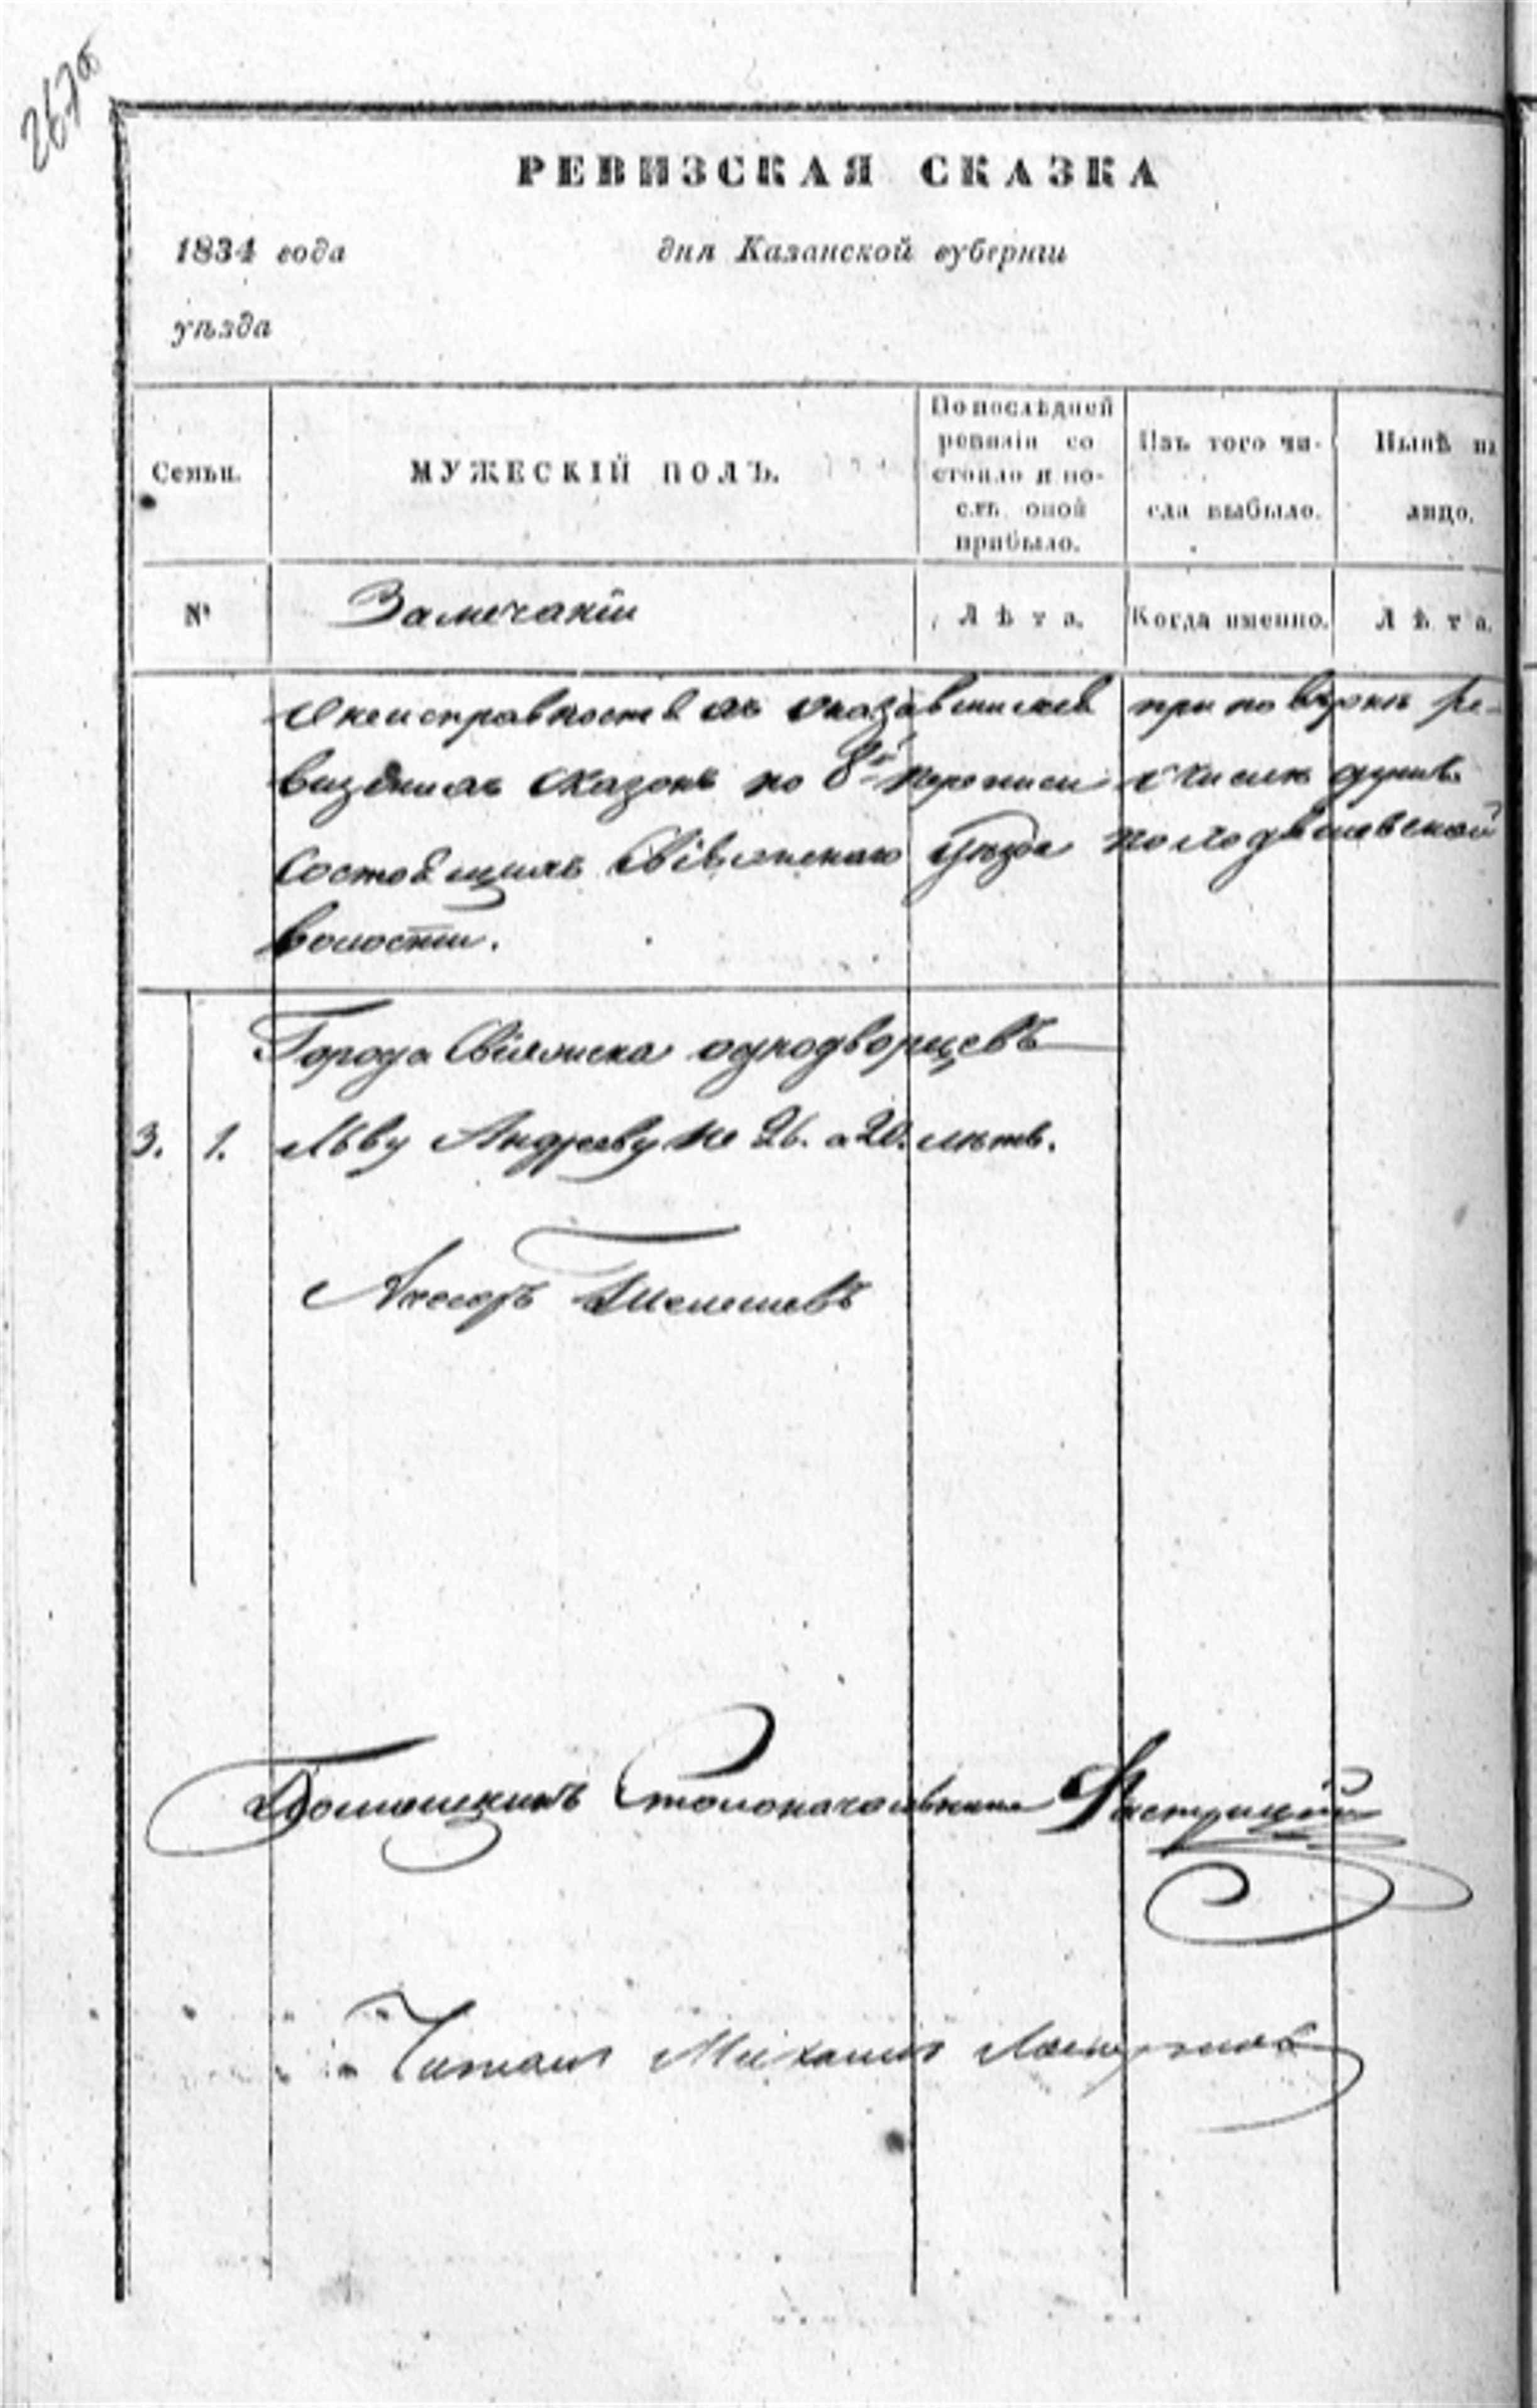 267об
РЕВИЗСКАЯ СКАЗКА
1834 года дня Казанской губерніи
уѣзда
Семьи.
МУЖЕСКІЙ ПОЛЪ.
По послѣдней
ревизіи со
стояло и по-
слѣ оной
прибыло.
Изъ того чи-
сла выбыло.
Нынѣ на
лицо.
№
Замечаніи
Лѣта.
Когда именно.
Лѣта.
О неисправностяхъ оказавшихся при поверкѣ ре-
визскихъ сказокъ по 8й переписи о числѣ душъ
состоящихъ Свіяжскаго уѣзда
волости.
Города Свіяжска однодворцевъ
3. 1. Льву Андрееву не 26. а 20. лѣтъ.
Столоначальника
Читалъ Михаилъ